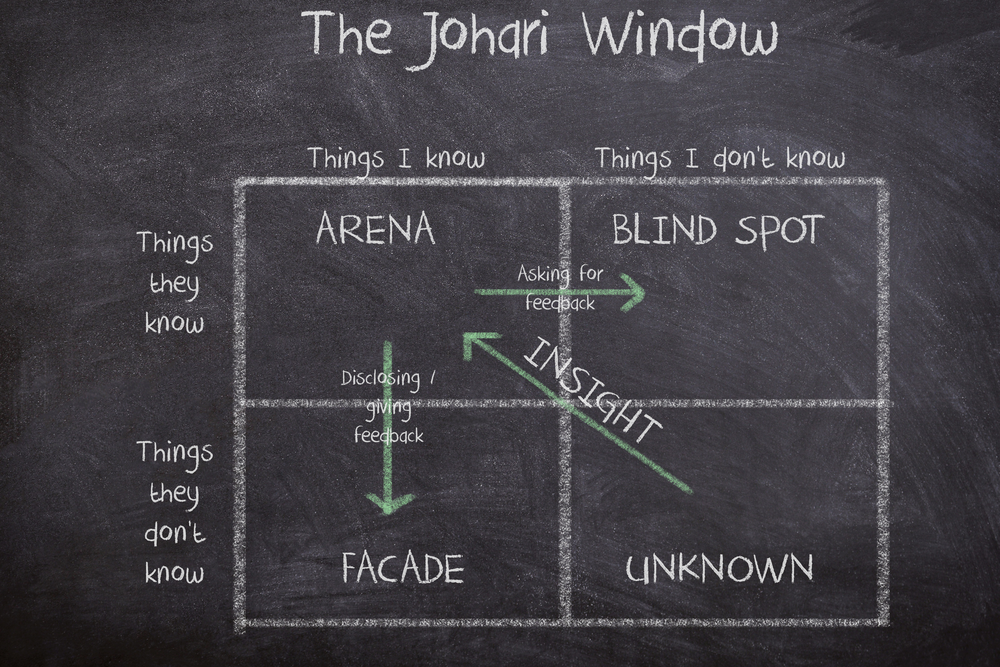 The Johari Window
Things I know
Things I don't know
ARENA
BLIND SPOT
Things
they
know
Asking for
feedback
INSIGHT
Disclosing /
giving
feedback
Things
they
don't
know
FACADE
UNKNOWN